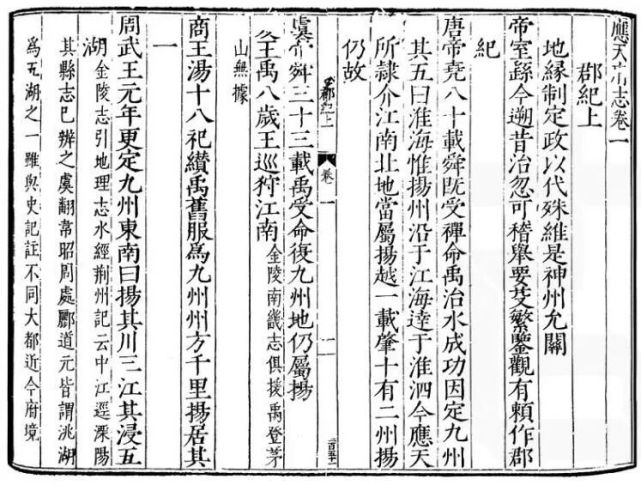 應天府志卷一
郡紀上
地緣制定政以代殊維是神州允關
帝室繇今遡昔治忽可稽舉要芟繁鑒觀有頼作郡
紀
唐帝堯八十載舜既受禪命禹治水成功因定九州
其五曰淮海惟揚州沿于江海達于淮泗今應天
所隷介江南北地當屬揚越一載肇十有二州揚
仍故
郡紀上
卷一
一
虞帝舜三十三載禹受命復九州地仍屬揚
夏王禹八歲王巡狩江南金陵南畿志俱援禹登茅
山無據
商王湯十八祀纘禹舊服爲九州州方千里揚居其
一
周武王元年更定九州東南曰揚其川三江其浸五
湖金陵志引地理志水經荆州記云中江逕溧陽
其縣志已辨之虞翻韋昭周處酈道元皆謂洮湖
爲五湖之一雖與史記註不同大都近今府境